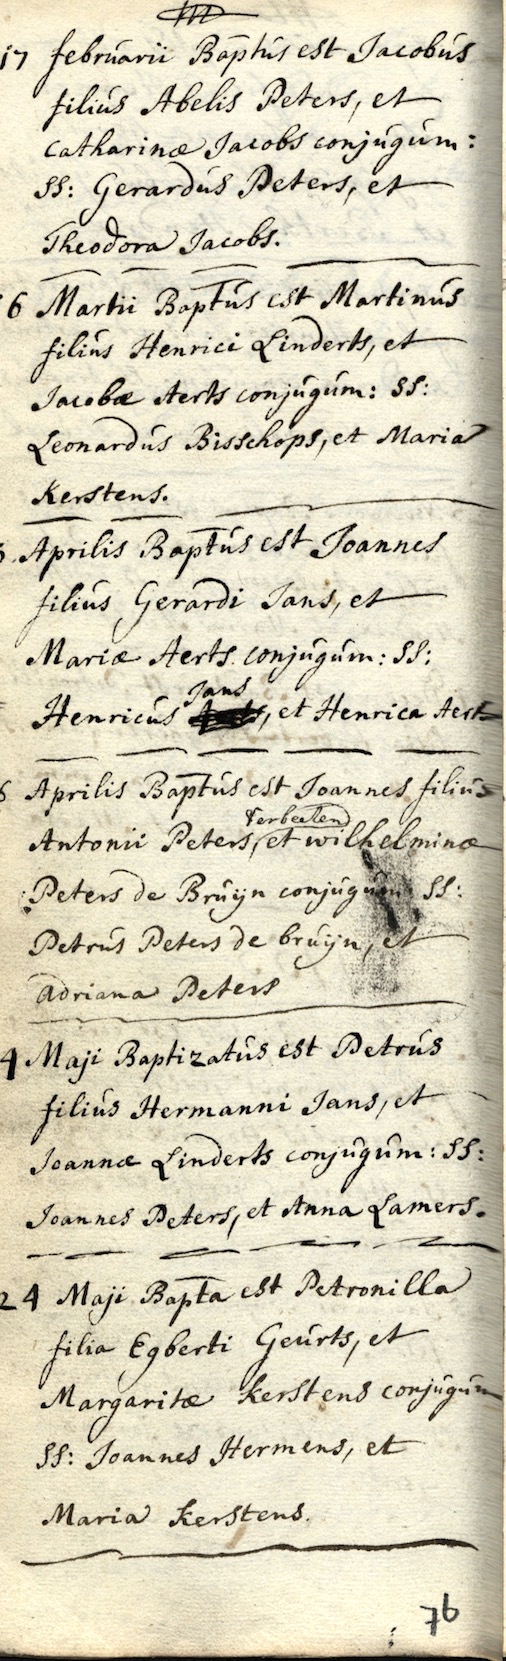 17 februarii Baptus est Jacobus
filius Abelis Peters, et
catharinæ Jacobs conjugum:
SS: Gerardus Peters, et
Theodora Jacobs.
6 Martii Baptus est Martinus
filius Henrici Linderts, et
Jacobæ Aerts conjugum: SS:
Leonardus Bisschops, et Maria
Kerstens.
Aprilis Baptus est Joannes
filius Gerardi Jans, et
Mariæ Aerts conjugum: SS:
Jans
Henricus, et Henrica Aert
Aprilis Baptus est Joannes filius
Verbeeten
Antonii Peters, et wilhelminæ
Peters de Bruyn conjugum SS:
Petrus Peters de bruyn, et
Adriana Peters
4 Maji Baptizatus est Petrus
filius Hermanni Jans, et
Joannæ Linderts conjugum: SS:
Joannes Peters, et Anna Lamers.
24 Maji Bapta est Petronilla
filia Egberti Geurts, et
Margaritæ Kerstens conjugum
SS: Joannes Hermens, et
Maria Kerstens.
76